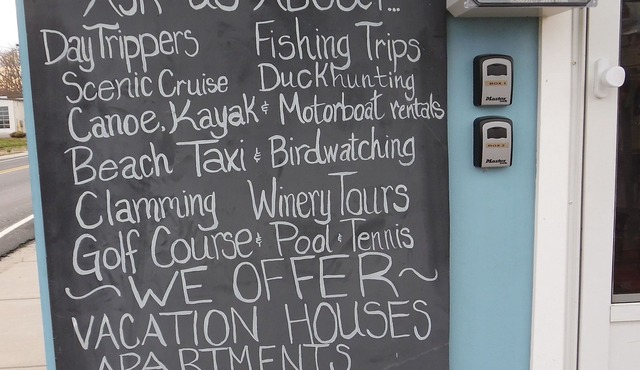 ASK us About...
Day Trippers Fishing Trips
Scenic Cruise Duckhunting
Canoe, Kayak & Motorboat rentals
Beach Taxi & Birdwatching
Clamming Winery Tours
Golf Course & Pool & Tennis
~ WE OFFER ~
VACATION HOUSES
APARTMENTS
Master
Master